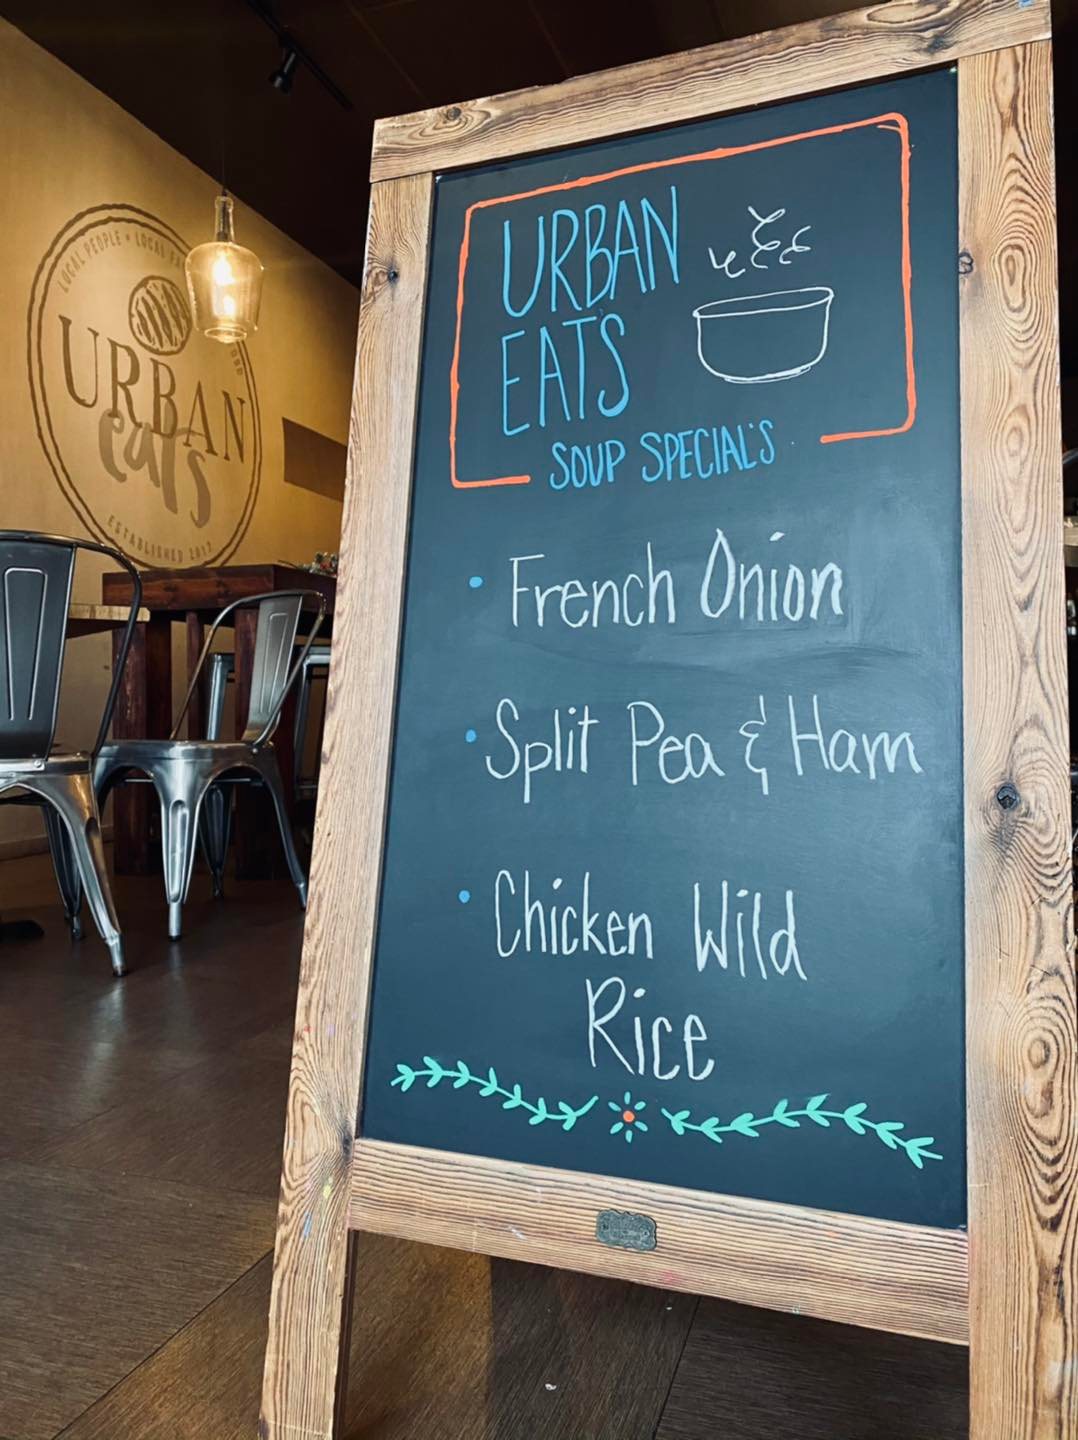 LOCAL PEOPLE • LOCAL
URBAN
eats
ESTABLISHED 2017
URBAN
EAT'S
SOUP SPECIAL'S
• French Onion
• Split Pea & Ham
• Chicken Wild
Rice